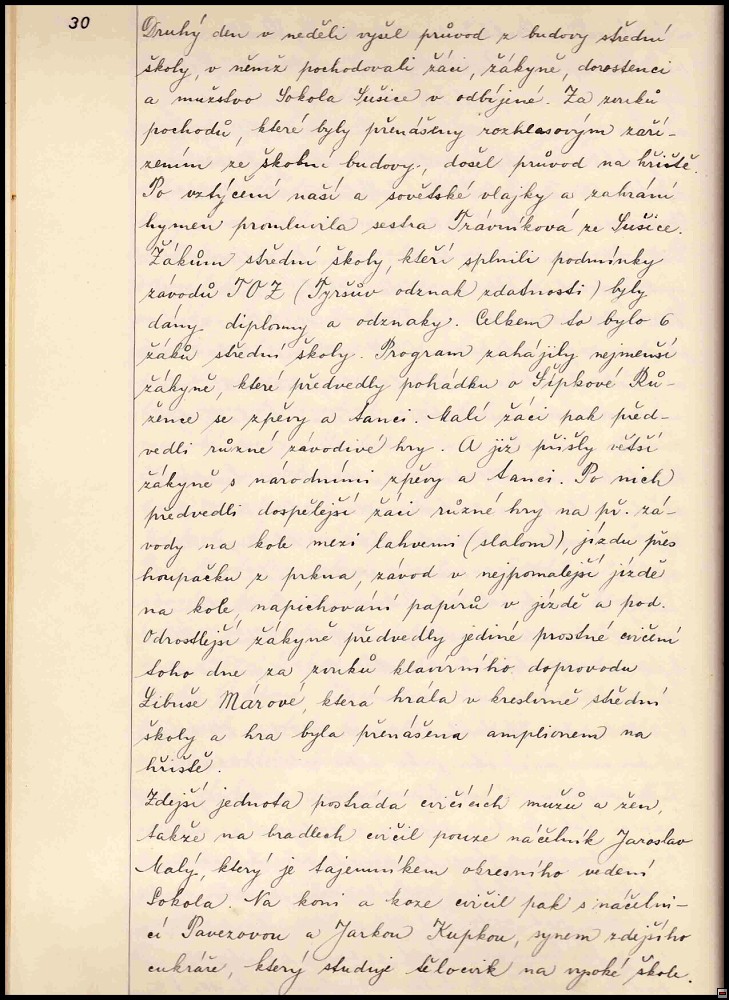 30
Druhý den v neděli vyšel průvod z budovy střední
školy, v němž pochodovali žáci, žákyně, dorostenci
a mužstvo Sokola Sušice v odbíjené. Za zvuků
pochodů, které byly přenášeny rozhlasovým zaří-
zením ze školní budovy, došel průvod na hřiště.
Po vztýčení naší a sovětské vlajky a zahrání
hymen promluvila sestra Trávníková ze Sušice.
Žákům střední školy, kteří splnili podmínky
závodů TOZ (Tyršův odznak zdatnosti) byly
dány diplomy a odznaky. Celkem to bylo 6
žáků střední školy. Program zahájily nejmenší
žákyně, které předvedly pohádku o Šípkové Rů-
žence se zpěvy a tanci. Malí žáci pak před-
vedli různé závodivé hry. A již přišly větší
žákyně s národními zpěvy a tanci. Po nich
předvedli dospělejší žáci různé hry na př. zá-
vody na kole mezi lahvemi (slalom), jízdu přes
houpačku z prkna, závod v nejpomalejší jízdě
na kole, napichování papírů v jízdě a pod.
Odrostlejší žákyně předvedly jediné prostné cvičení
toho dne za zvuků klavírního doprovodu
Libuše Márové, která hrála v kreslírně střední
školy a hra byla přenášena amplionem na
hřiště.
Zdejší jednota postrádá cvičících mužů a žen,
takže na bradlech cvičil pouze náčelník Jaroslav
Malý, který je tajemníkem okresního vedení
Sokola. Na koni a koze cvičil pak s náčelni-
cí Pavezovou a Jarkou Kupkou, synem zdejšího
cukráře, který studuje tělocvik na vysoké škole.